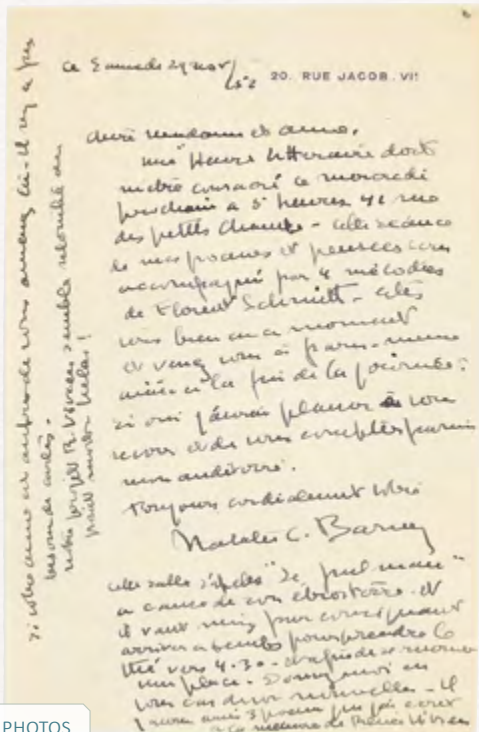 ce Samedi 29 nov/52
20. RUE JACOB. VIᵉ
chère madame et amie,
une Heure littéraire doit
m'être consacré ce mercredi
prochain à 5 heures 42 rue
des petits Champs - cette séance
de mes poèmes et pensées sera
accompagné par 4 mélodies
de Florent Schmitt - êtes
vous bien en ce moment
et venez vous à paris - même
à la fin de la journée?
si oui j'aurai plaisir à vous
revoir et de vous compter parmi
mon auditoire.
toujours cordialement votre
Natalie C. Barney
cette salle s'appelle "le pullman"
a cause de son étroitesse. et
il vaut mieux par conséquent
arriver à temps pour prendre le
thé vers 4.30 - afin de
une place - Donnez moi en
tous cas de vos nouvelles - il
à la mémoire de Renée Vivien
si votre amie est auprès de vous amenez la - il n'y a pas
besoin de cartes -
notre projet R. Vivien semble retombé au
point mort hélas!
PHOTOS